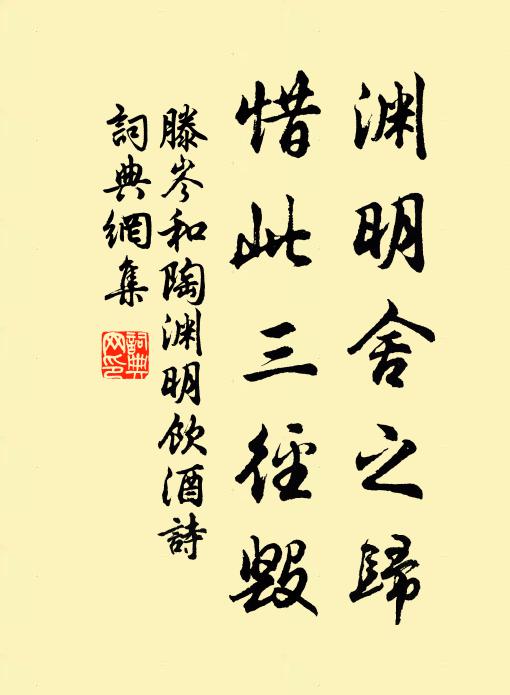 渊明舍之歸
惜此三徑毀
滕岑和陶渊明飲酒詩
詞典網集
詞典
网印